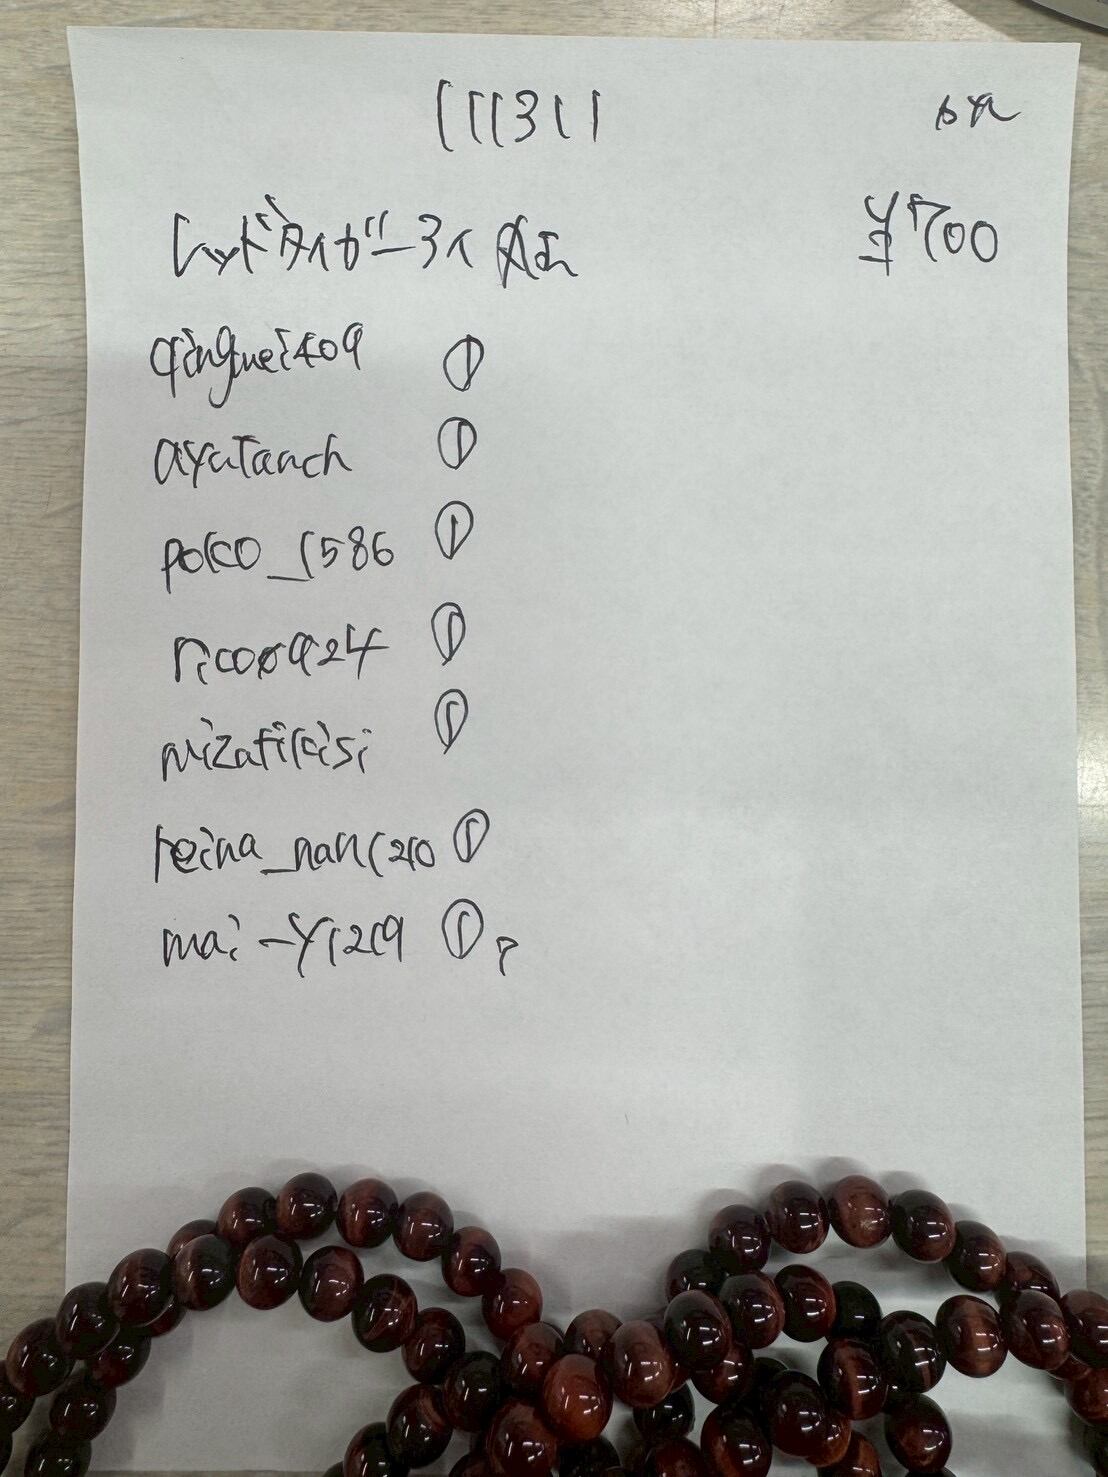 111311
¥700
レッドタイガーアイ
qingmei409 ①
ayutanch ①
poko_1586 ①
ricoo924 ①
mizatikisi ①
reina_nan1210 ①
mai-y1219 ①